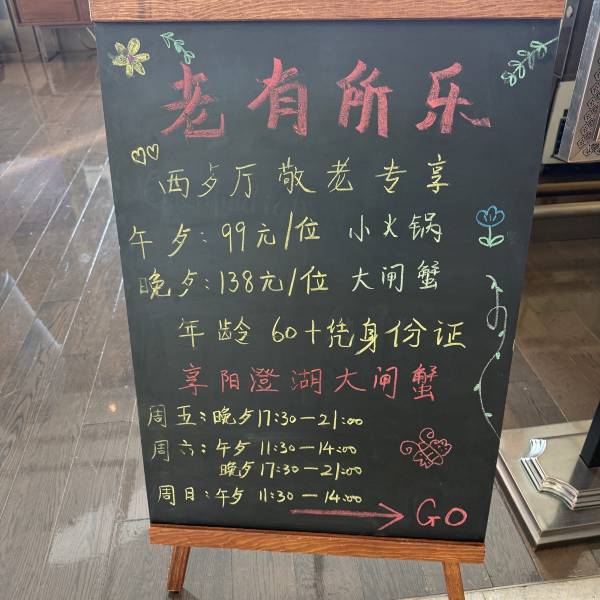 老有所乐
西歺厅 敬老 专享
午歺：99元/位 小火锅
晚歺：138元/位 大闸蟹
年龄 60+凭身份证
享阳澄湖大闸蟹
周五：晚歺17:30—21:00
周六：午歺 11:30—14:00
晚歺17:30—21:00
周日：午歺 11:30—14:00
GO